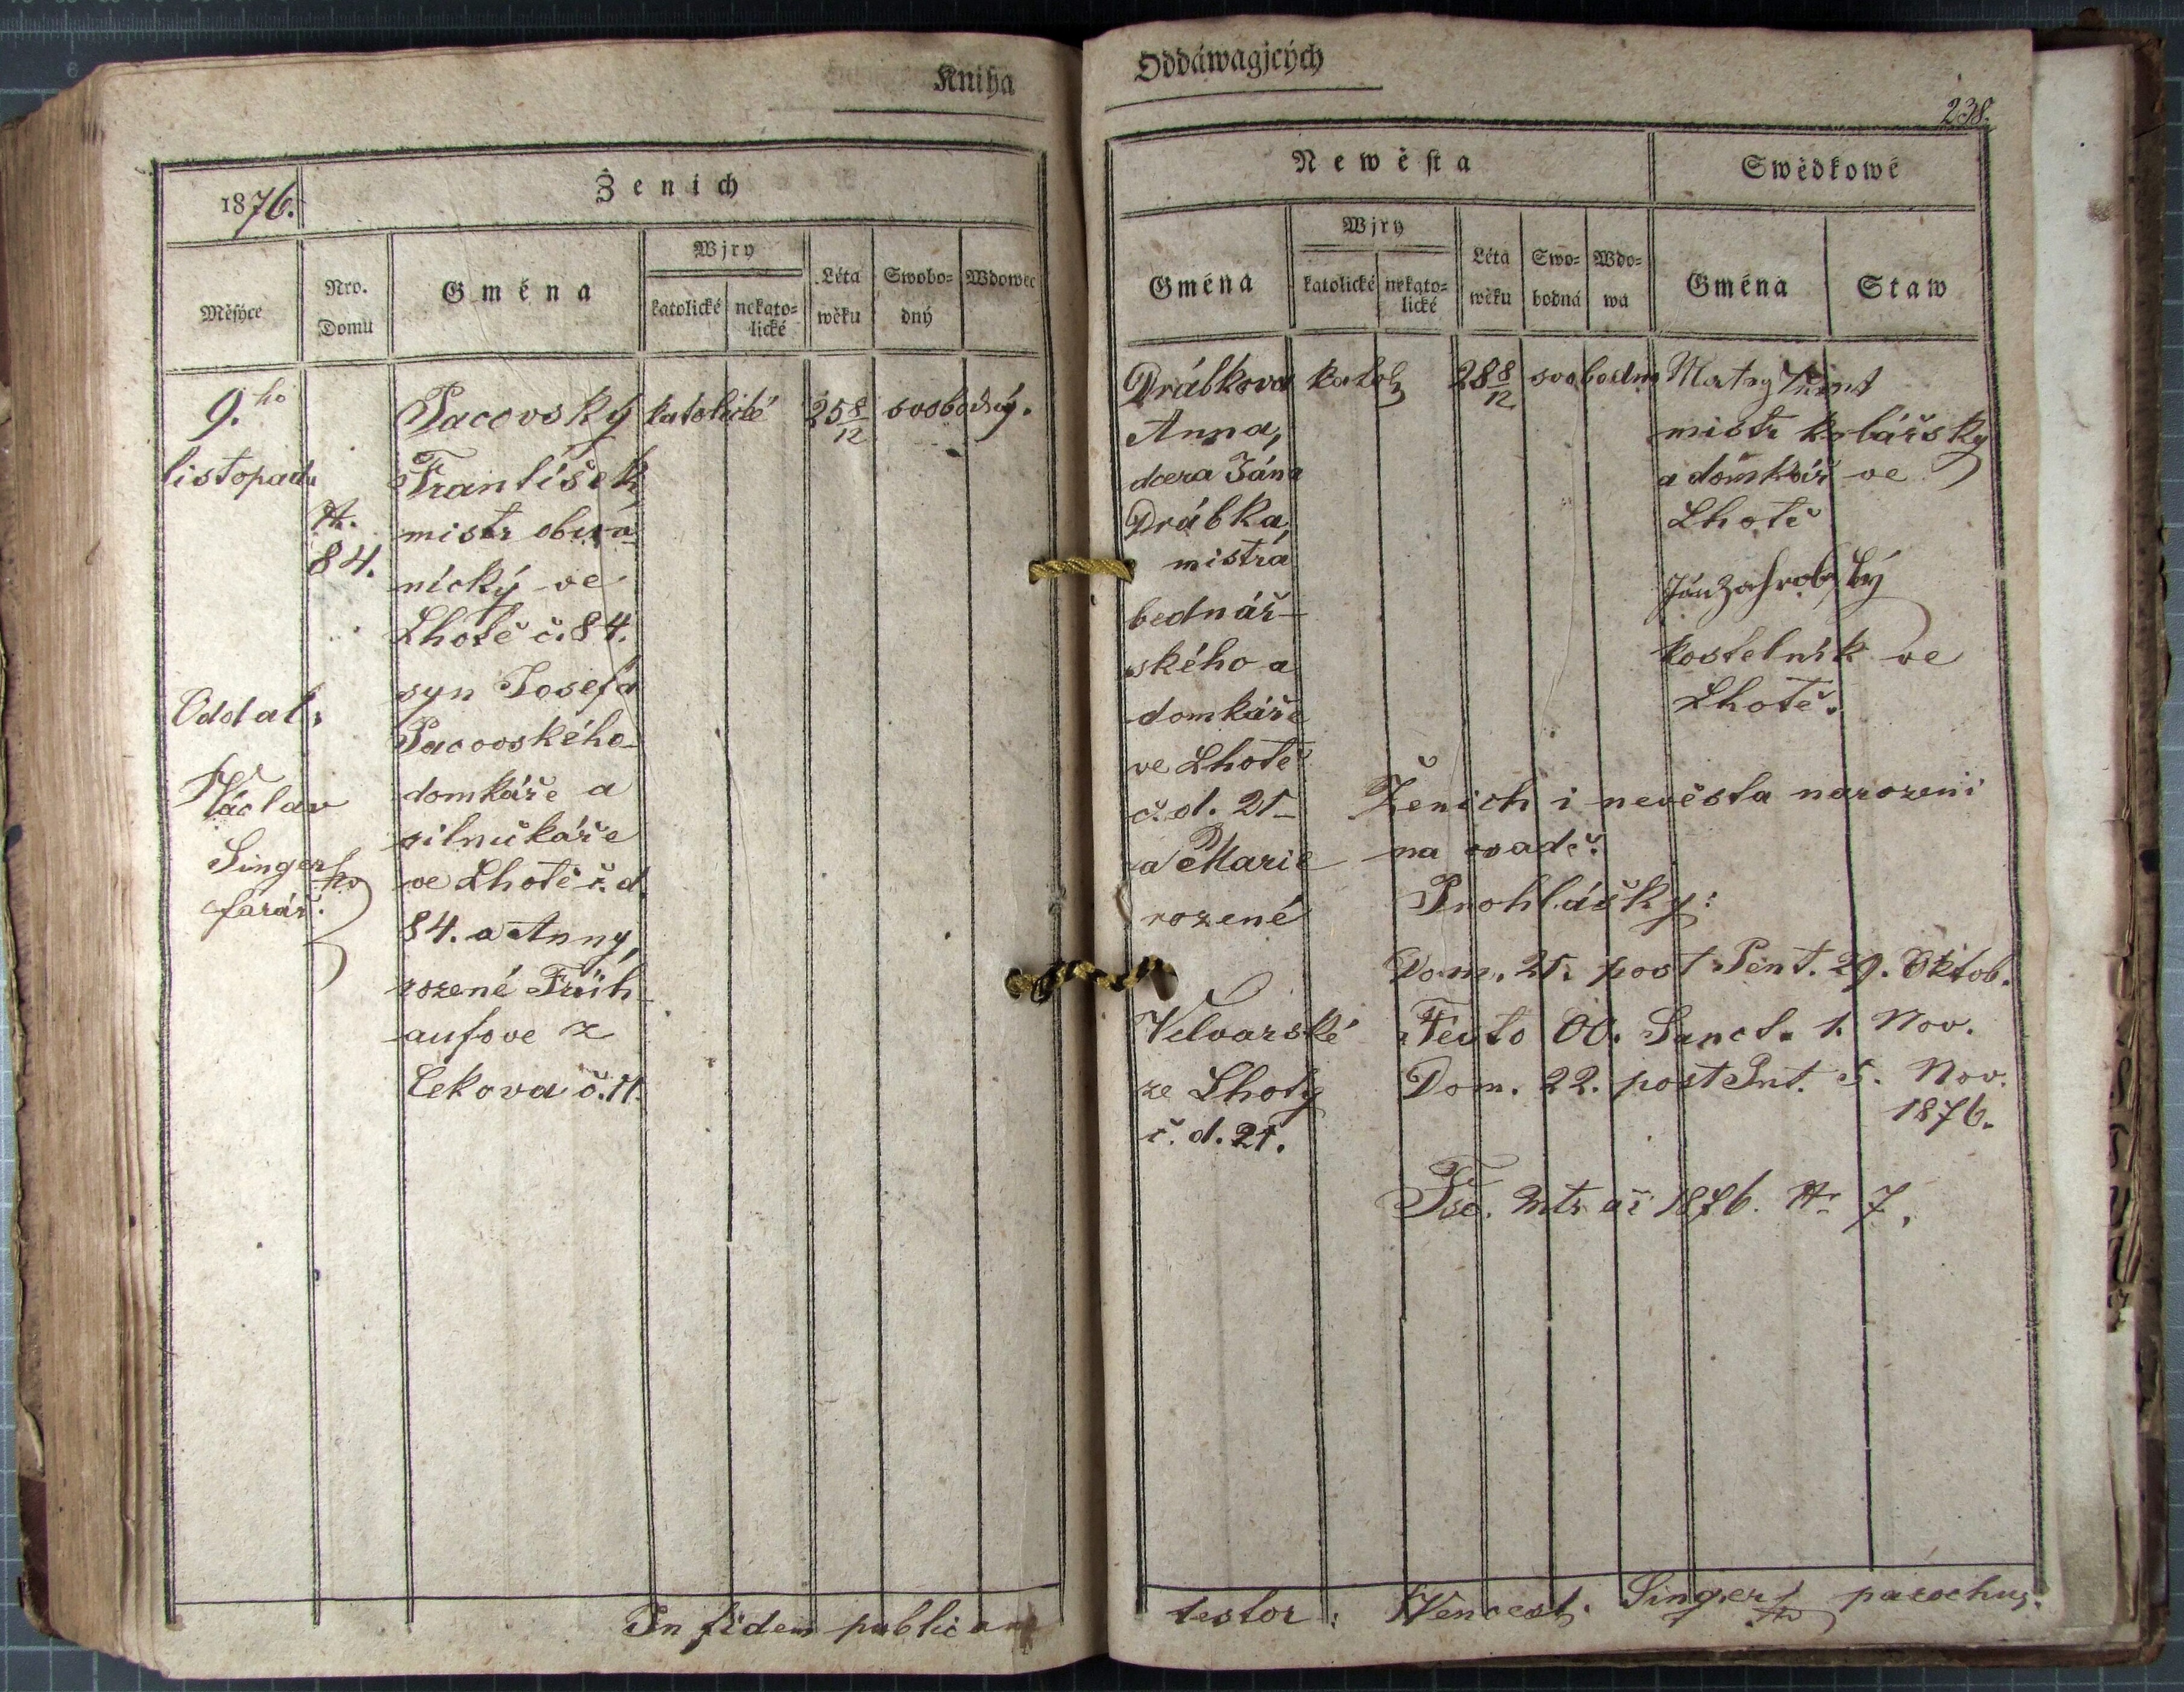 Kniha
1876.
Ženich
Měsýce
Nro.
Domu
Gména
Wjry
katolické
nekato=
lické
Léta
wěku
Swobo=
dný
Wdowec
9.ho
listopadu
84.
Oddal:
Václav
Singer
farář.
Pacovský katolické 25 8/12 svobodný.
František
mistr obuv
nický ve
Lhotě č. 84.
syn Josefa
Pacovského
domkáře a
silničkáře
ve Lhotě č. d.
84. a Anny,
rozené Früh
aufove z
Cekova č. 11.
In fidem publicam
Oddáwagjcých
238.
Newěsta
Swědkowé
Gména
Wjry
katolické
nekato=
lické
Léta
wěku
Swo=
bodná
Wdo=
wa
Gména
Staw
Drábkova katol. 28 8/12 svobodna
Anna,
dcera Jána
Drábka
mistra
bednář-
ského a
domkáře
ve Lhotě
č. d. 21
a Marie
rozené
Velvarské
ze Lhoty
č. d. 21.
mistr kolářský
a domkář ve
Lhotě
Jan Zahrobský
kostelník ve
Lhotě.
Ženich i nevěsta narozeni
na osadě.
Prohlášky:
Dom. 21. post Pent. 29. Oktob.
Festo OO. Sanct. 1. Nov.
Dom. 22. post Pnt. 5. Nov.
1876.
1876. 7.
testor: Wencesl. Singer parochus.